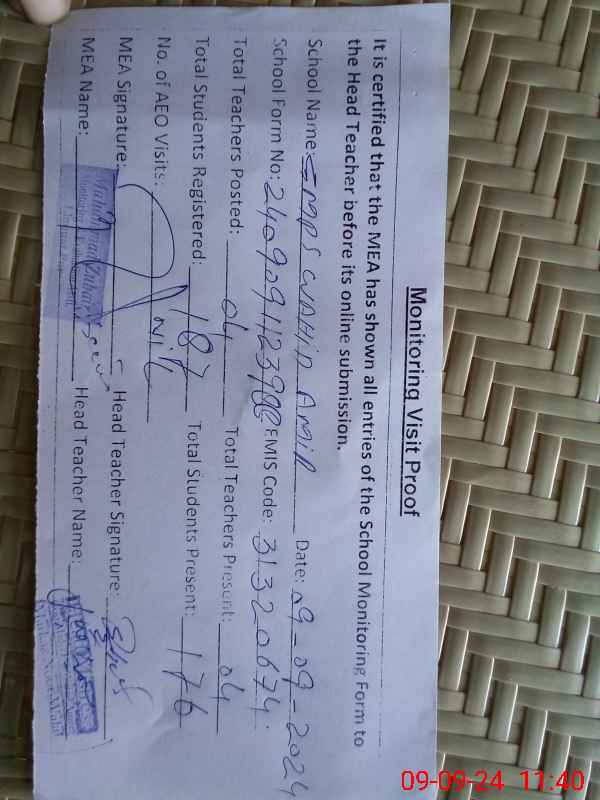 Monitoring Visit Proof
It is certified that the MEA has shown all entries of the School Monitoring Form to
the Head Teacher before its online submission.
School Name: GMPS WAHID AMIR Date: 09-09-2024
School Form No: EMIS Code: 31320674
Total Teachers Posted: 04 Total Teachers Present: 04
Total Students Registered: 187 Total Students Present: 176
No. of AEO Visits: NIL
MEA Signature: Head Teacher Signature:
MEA Name: Head Teacher Name:
09-09-24 11:40